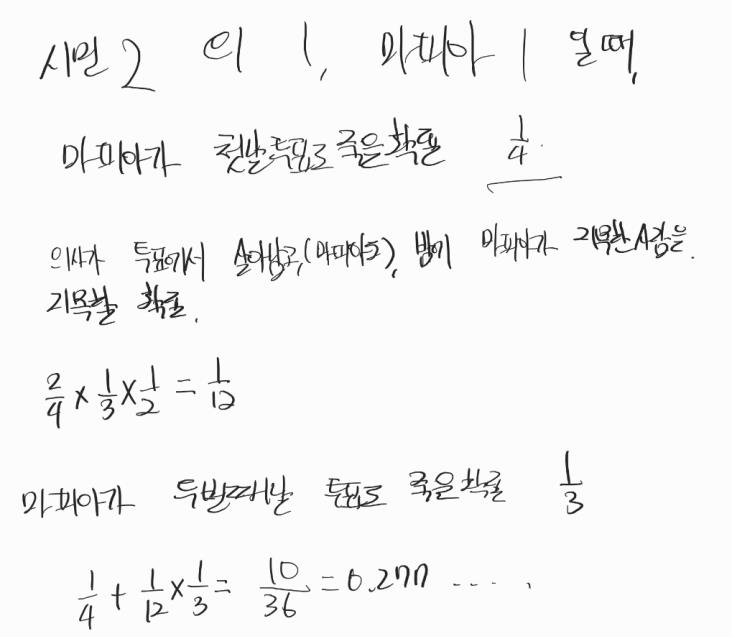 시민 2 의 1, 마피아 1 일때,
마피아가 첫날투표로 죽을확률 1/4.
의사가 투표에서 살아남고,(마피아도), 밤에 마피아가 지목한사람을
지목할 확률.
2/4 × 1/3 × 1/2 = 1/12
마피아가 두번째날 투표로 죽을확률 1/3
1/4 + 1/12 × 1/3 = 10/36 = 0.277 ....